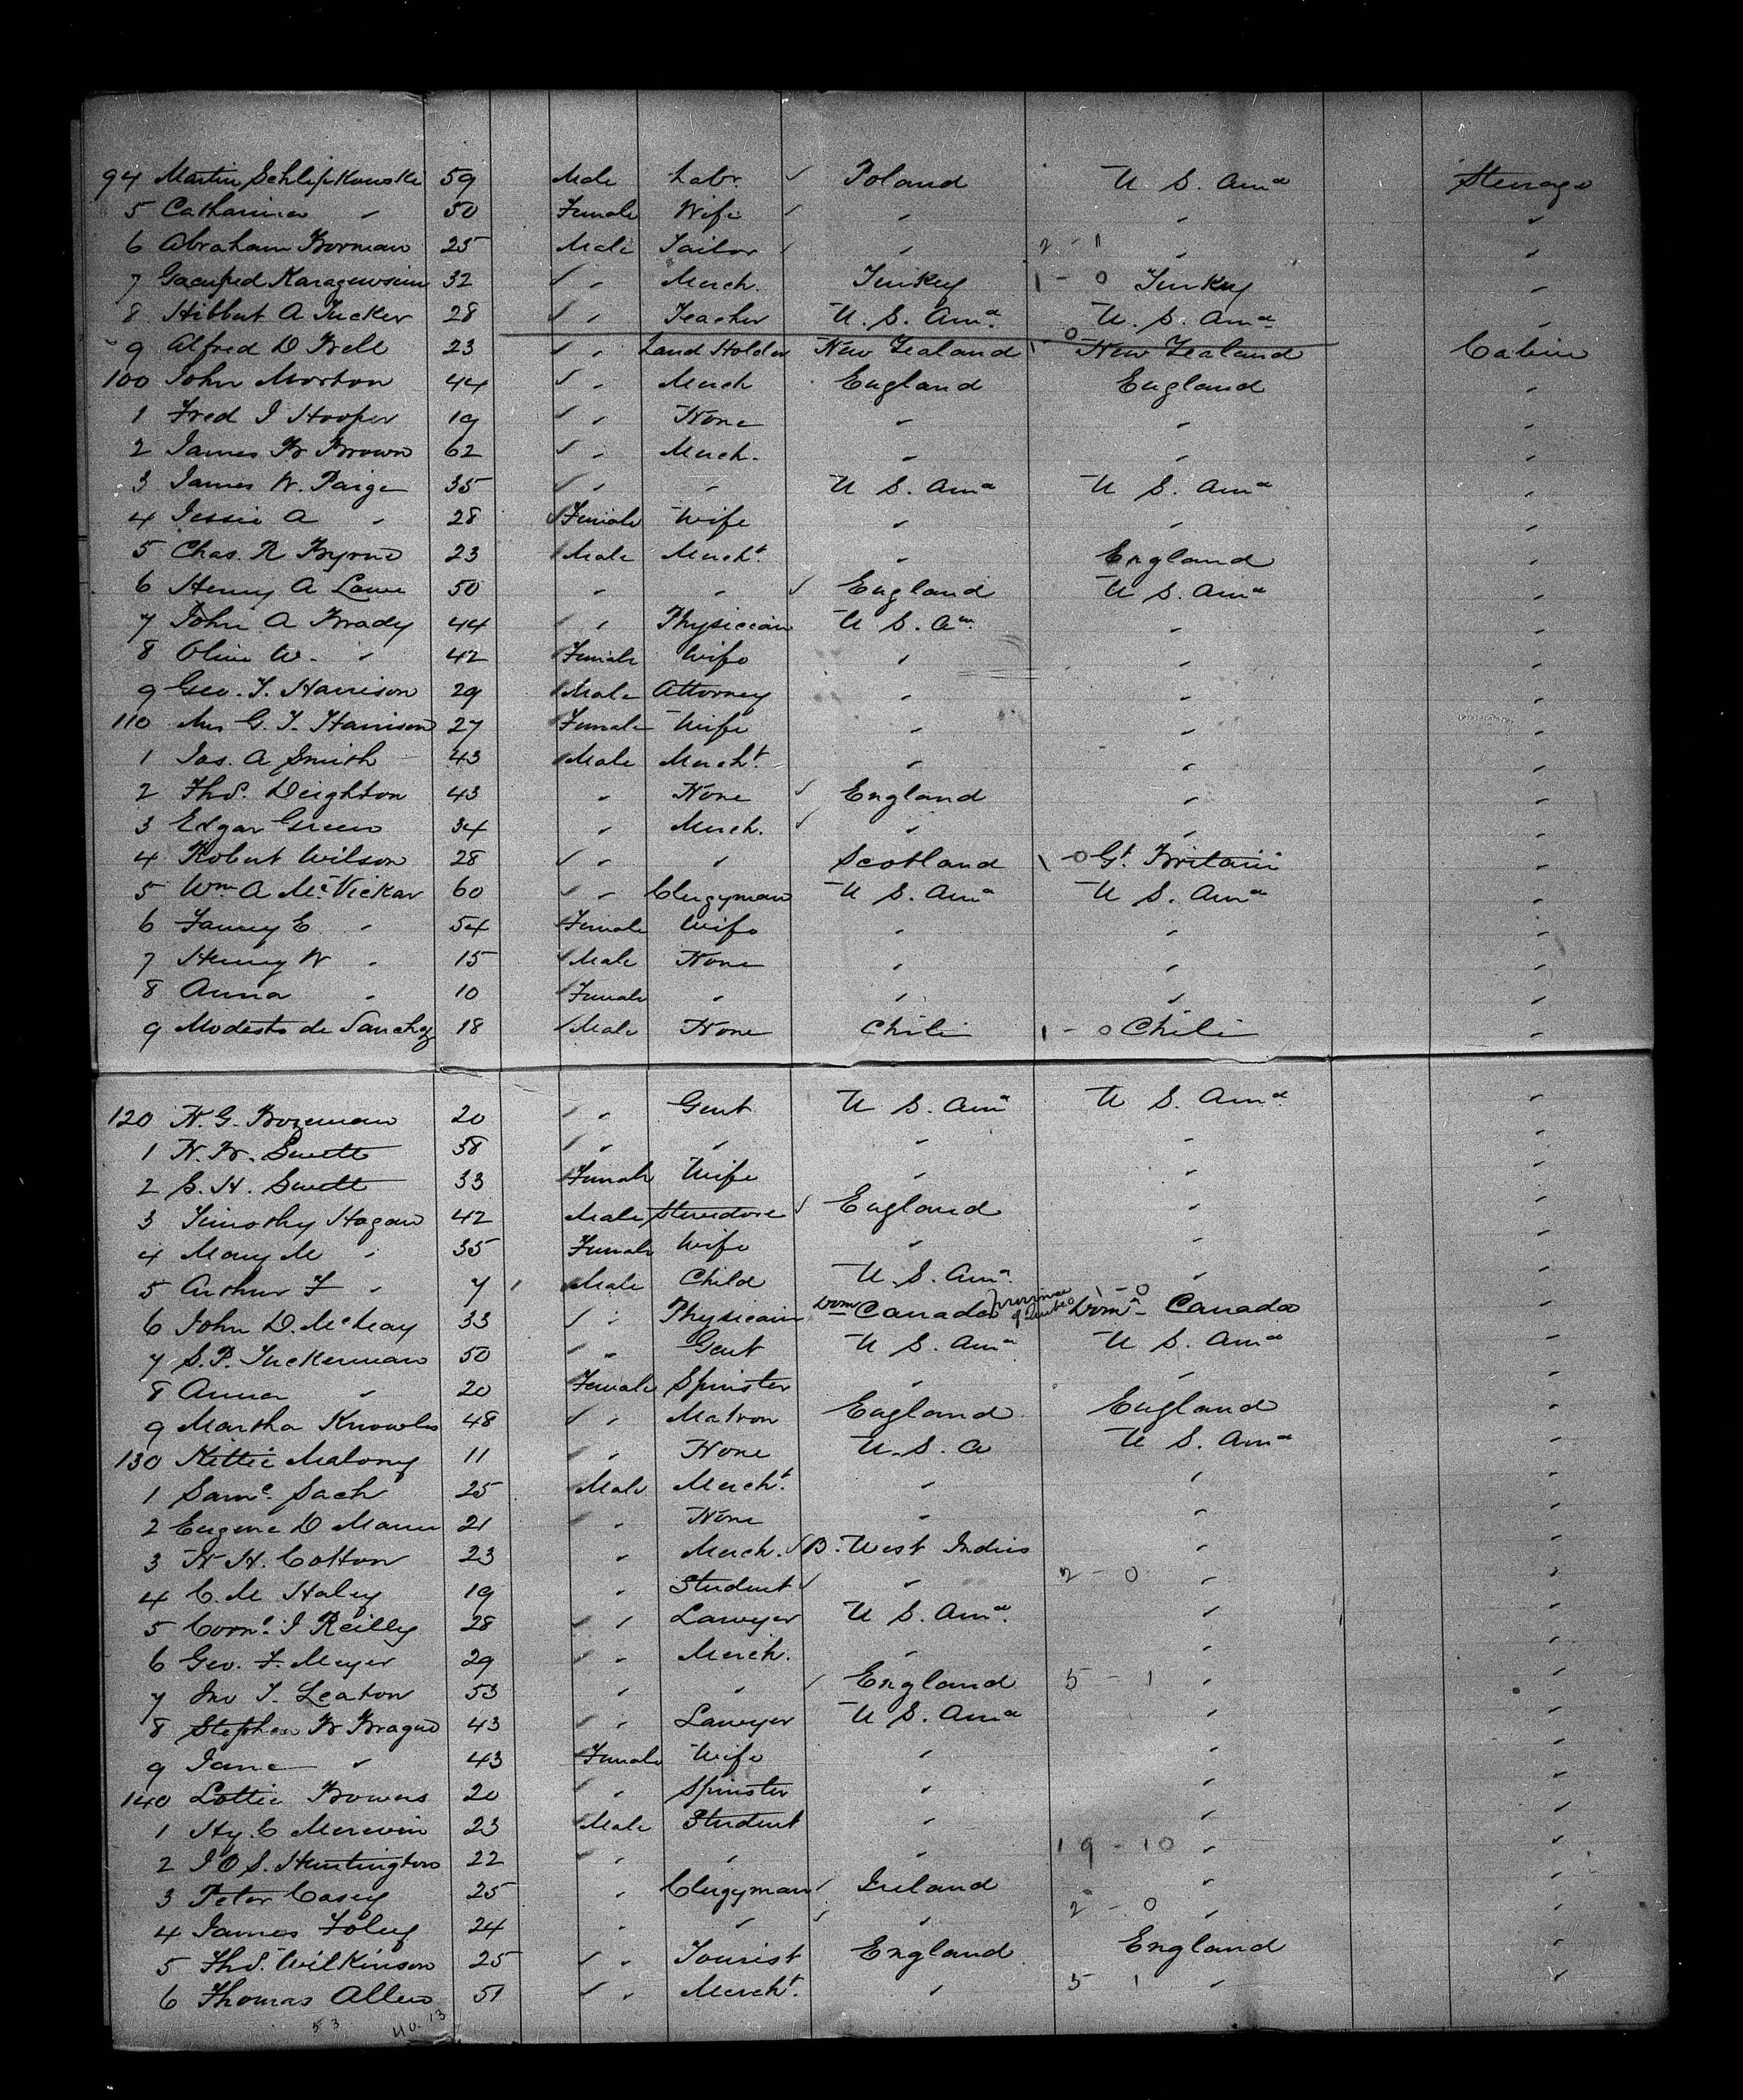 94 Martin Schlipkowski 59 Male Labr. ✓ Poland U. S. Ama Steerage
5 Catharina " 50 Female Wife ✓ " " "
6 Abraham Borman 25 Male Tailor " 2 - 11 " "
7 Karagewsian 32 ✓ " Merch. Turkey 1 - 0 Turkey "
8 Hibbert A Tucker 28 ✓ " Teacher U. S. Ama U. S. Ama "
9 Alfred D Bell 23 ✓ " Land Holder New Zealand 1 - 0 New Zealand Cabin
100 John Morton 44 ✓ " Merch England England "
1 Fred J Hooper 19 ✓ " None " " "
2 James B Brown 62 ✓ " Merch. " " "
3 James W. Paige 35 ✓ " " U S. Ama U S. Ama "
4 Jessie A " 28 ✓ Female Wife " " "
5 Chas. R Byrne 23 Male Mercht. " England "
6 Henry A Lowe 50 " " ✓ England U S. Ama "
7 John A Brady 44 " " Physician U S. Am " "
8 Olive W. " 42 Female Wife " " "
9 Geo. T. Harrison 29 Male Attorney " " "
110 Mrs G. T. Harrison 27 Female Wife " " "
1 Jas. A Smith 43 Male Mercht. " " "
2 Thos. Deighton 43 " None ✓ England " "
3 Edgar Green 34 " Merch. ✓ " " "
4 Robert Wilson 28 ✓ " " Scotland 1 - 0 Gt. Britain "
5 Wm A McVickar 60 ✓ " Clergyman U S. Ama U S. Ama "
6 Fanny E. " 54 Female Wife " " "
7 Henry W " 15 Male None " " "
8 Anna " 10 Female " " " "
9 Modesto de Sanchez 18 Male None Chili 1 - 0 Chili "
120 N. G. Bozeman 20 " " Gent U S. Ama U S. Ama "
1 N. B. Swett 58 " " " " " "
2 S. H. Swett 33 Female Wife " " "
3 Timothy Hogan 42 Male Stevedore ✓ England " "
4 Mary M " 35 Female Wife " " "
5 Arthur F " 7 Male Child U. S. Ama " "
6 John D. McKay 33 ✓ " Physician Dom Canada Province of Quebec 1 - 0 Domn Canada "
7 S. P. Tuckerman 50 " " Gent U S. Ama U S. Ama "
8 Anna " 20 Female Spinster " " "
9 Martha Knowles 48 ✓ " Matron England England "
130 Kittie Malony 11 " " None U. S. A U S. Ama "
1 Saml. Sach 25 Male Mercht. " " "
2 Eugene D Mann 21 " " None " " "
3 N H. Cotton 23 " Merch. ✓ B. West Indies " "
4 C. M Haley 19 " Student ✓ " 2 - 0 " "
5 Corns. J Reilly 28 " " Lawyer U S. Ama " "
6 Geo. F. Meyer 29 " " Merch. " " "
7 Jno T. Leaton 53 " " ✓ England 5 - 1 " "
8 Stephen B Brague 43 " " Lawyer U S. Ama " "
9 Jane " 43 Female Wife " " "
140 Lottie Bowers 20 " " Spinster " " "
1 Hy. C Merwin 23 Male Student " " "
2 J O S. Huntington 22 " " " " 19 - 10 " "
3 Peter Casey 25 " Clergyman ✓ Ireland " "
4 James Foley 24 " " ✓ " 2 - 0 " "
5 Thos. Wilkinson 25 ✓ " Tourist England England "
6 Thomas Allen 51 ✓ " Mercht. " 5 1 " "
53 No. 13